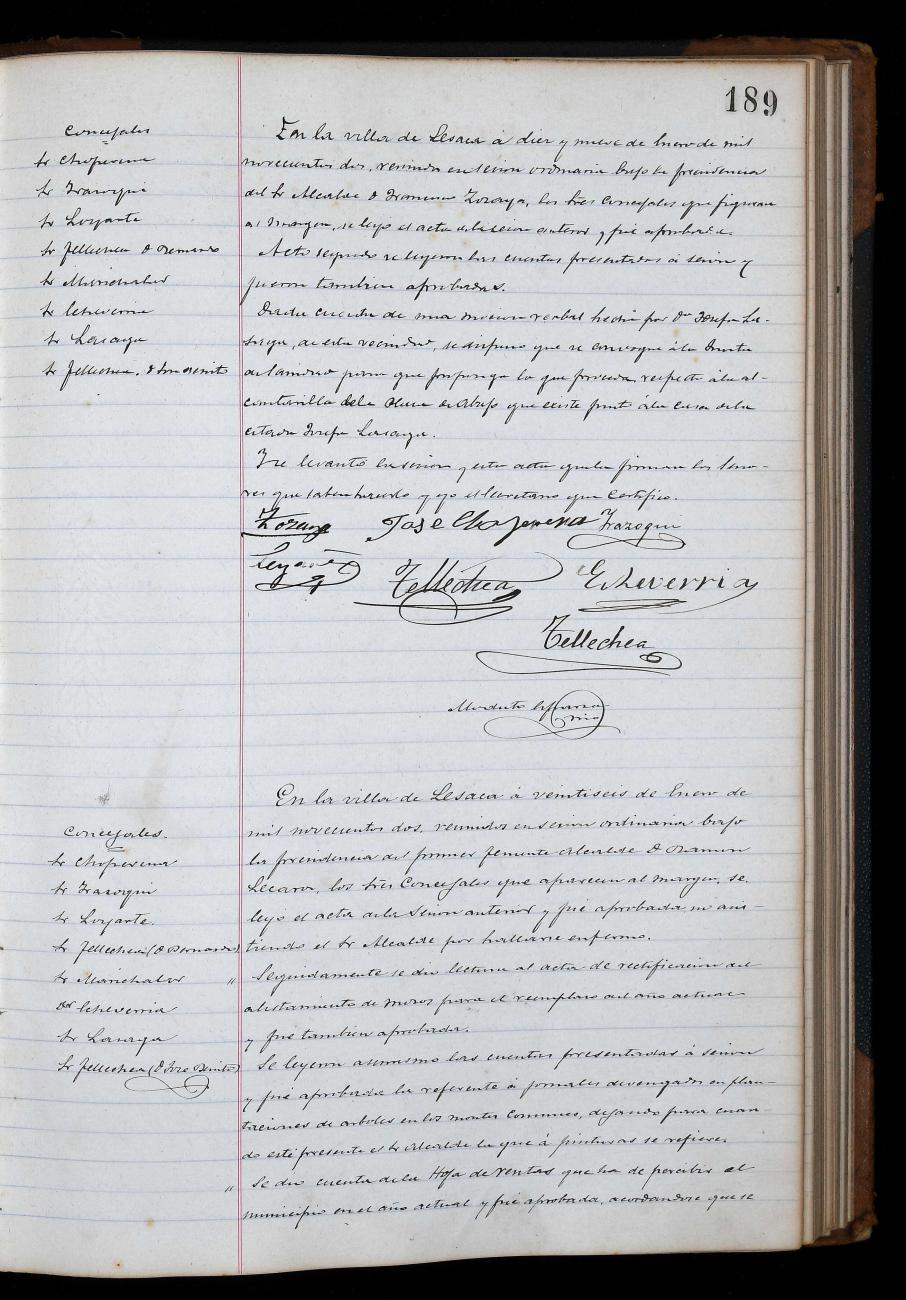 189
Concejales
Sr Choperena
Sr Irazoqui
Sr Loyarte
Sr Tellechea D Bernardo
Sr Marichalar
Sr Echeverria
Sr Lasaga
Sr Tellechea. D José Benito
En la villa de Lesaca á diez y nueve de Enero de mil
novecientos dos, reunidos en sesion ordinaria bajo la presidencia
del Sr Alcalde D Francisco Zozaya, los Sres Concejales que figuran
al margen, se leyo el acta de la sesion anterior y fué aprobada.
Acto seguido se leyeron las cuentas presentadas á sesion y
fueron tambien aprobadas.
Dada cuenta de una mocion verbal hecha por Dª Josefa La-
saga, de esta vecindad, se dispuso que se convoque á la Junta
de Sanidad para que proponga lo que proceda, respecto á la al-
cantarilla de la de Abajo que existe junto á la casa de la
citada Josefa Lasaga.
Y se levantó la sesion y esta acta que la firman los Seño-
res que saben hacerlo y yo el Secretario que certifico.
Zozaya Jose Choperena Irazoqui
Loyarte Tellechea Echeverria
Tellechea
Modesto
En la villa de Lesaca á veintiseis de Enero de
mil novecientos dos, reunidos en sesion ordinaria bajo
la presidencia del primer Teniente Alcalde D Ramon
Lecaroz, los Sres Concejales que aparecen al margen, se
leyó el acta de la sesion anterior y fué aprobada no asis-
tiendo el Sr Alcalde por hallarse enfermo.
Concejales.
Sr Choperena
Sr Irazoqui
Sr Loyarte.
Sr Tellechea (D Bernardo)
Sr Marichalar "
Sr Echeverria
Sr Lasaga
Sr Tellechea (D José Benito)
Seguidamente se dio lectura al acta de rectificacion del
alistamiento de mozos para el reemplazo del año actual
y fué tambien aprobada.
Se leyeron asimismo las cuentas presentadas á sesion
y fué aprobada la referente á jornales devengados en plan-
taciones de arboles en los montes comunes, dejando para cuan-
do esté presente el Sr Alcalde la que á pinturas se refiere.
" Se dio cuenta de la Hoja de ventas que ha de percibir el
municipio en el año actual y fué aprobada, acordandose que se